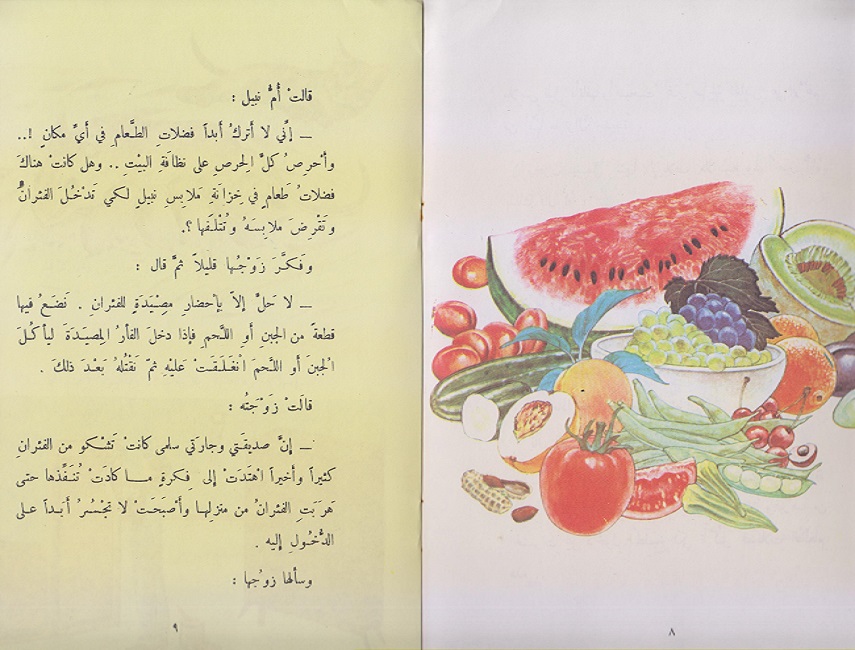 قالتْ أُمُّ نبيل :
ــ إنِّي لا أتركُ أبداً فضلاتِ الطَّعامِ في أيِّ مكانٍ !..
وأحْرِصُ كلَّ الحِرصِ على نظافَةِ البيْتِ .. وهل كانتْ هناكَ
فضلاتُ طَعامٍ في خِزانَةِ مَلابِسِ نبيلٍ لكي تَدخُلَ الفئرانُ
وتَقْرِضَ ملابِسَهُ وتُتْلِفَها ؟.
وفَكَّرَ زَوْجُها قليلاً ثمَّ قال :
ــ لا حَلَّ إلاّ بإحْضارِ مِصْيَدَةٍ للفئرانِ . نَضَعُ فيها
قطعةً من الجبنِ أوِ اللَّحمِ فإذا دخلَ الفأرُ المِصيَدَةَ ليأكُلَ
الْجبنَ أو اللَّحمَ اْنغَلَقَتْ عَليْهِ ثمّ نَقْتُلهُ بَعْدَ ذلكَ .
قالَتْ زَوْجَتُه :
ــ إنَّ صديقَتي وجارَتي سلمى كانتْ تَشْكو من الفئرانِ
كثيراً وأخيراً اهْتَدَتْ إلى فِكرةٍ مــا كادَتْ تُنَفِّذها حتى
هَرَبَتِ الفئرانُ من منزلِهـا وأصْبَحَتْ لا تَجْسُرُ أبَـداً عـلى
الدُّخُـولِ إليه .
وسألها زوْجُها :
٩
٨